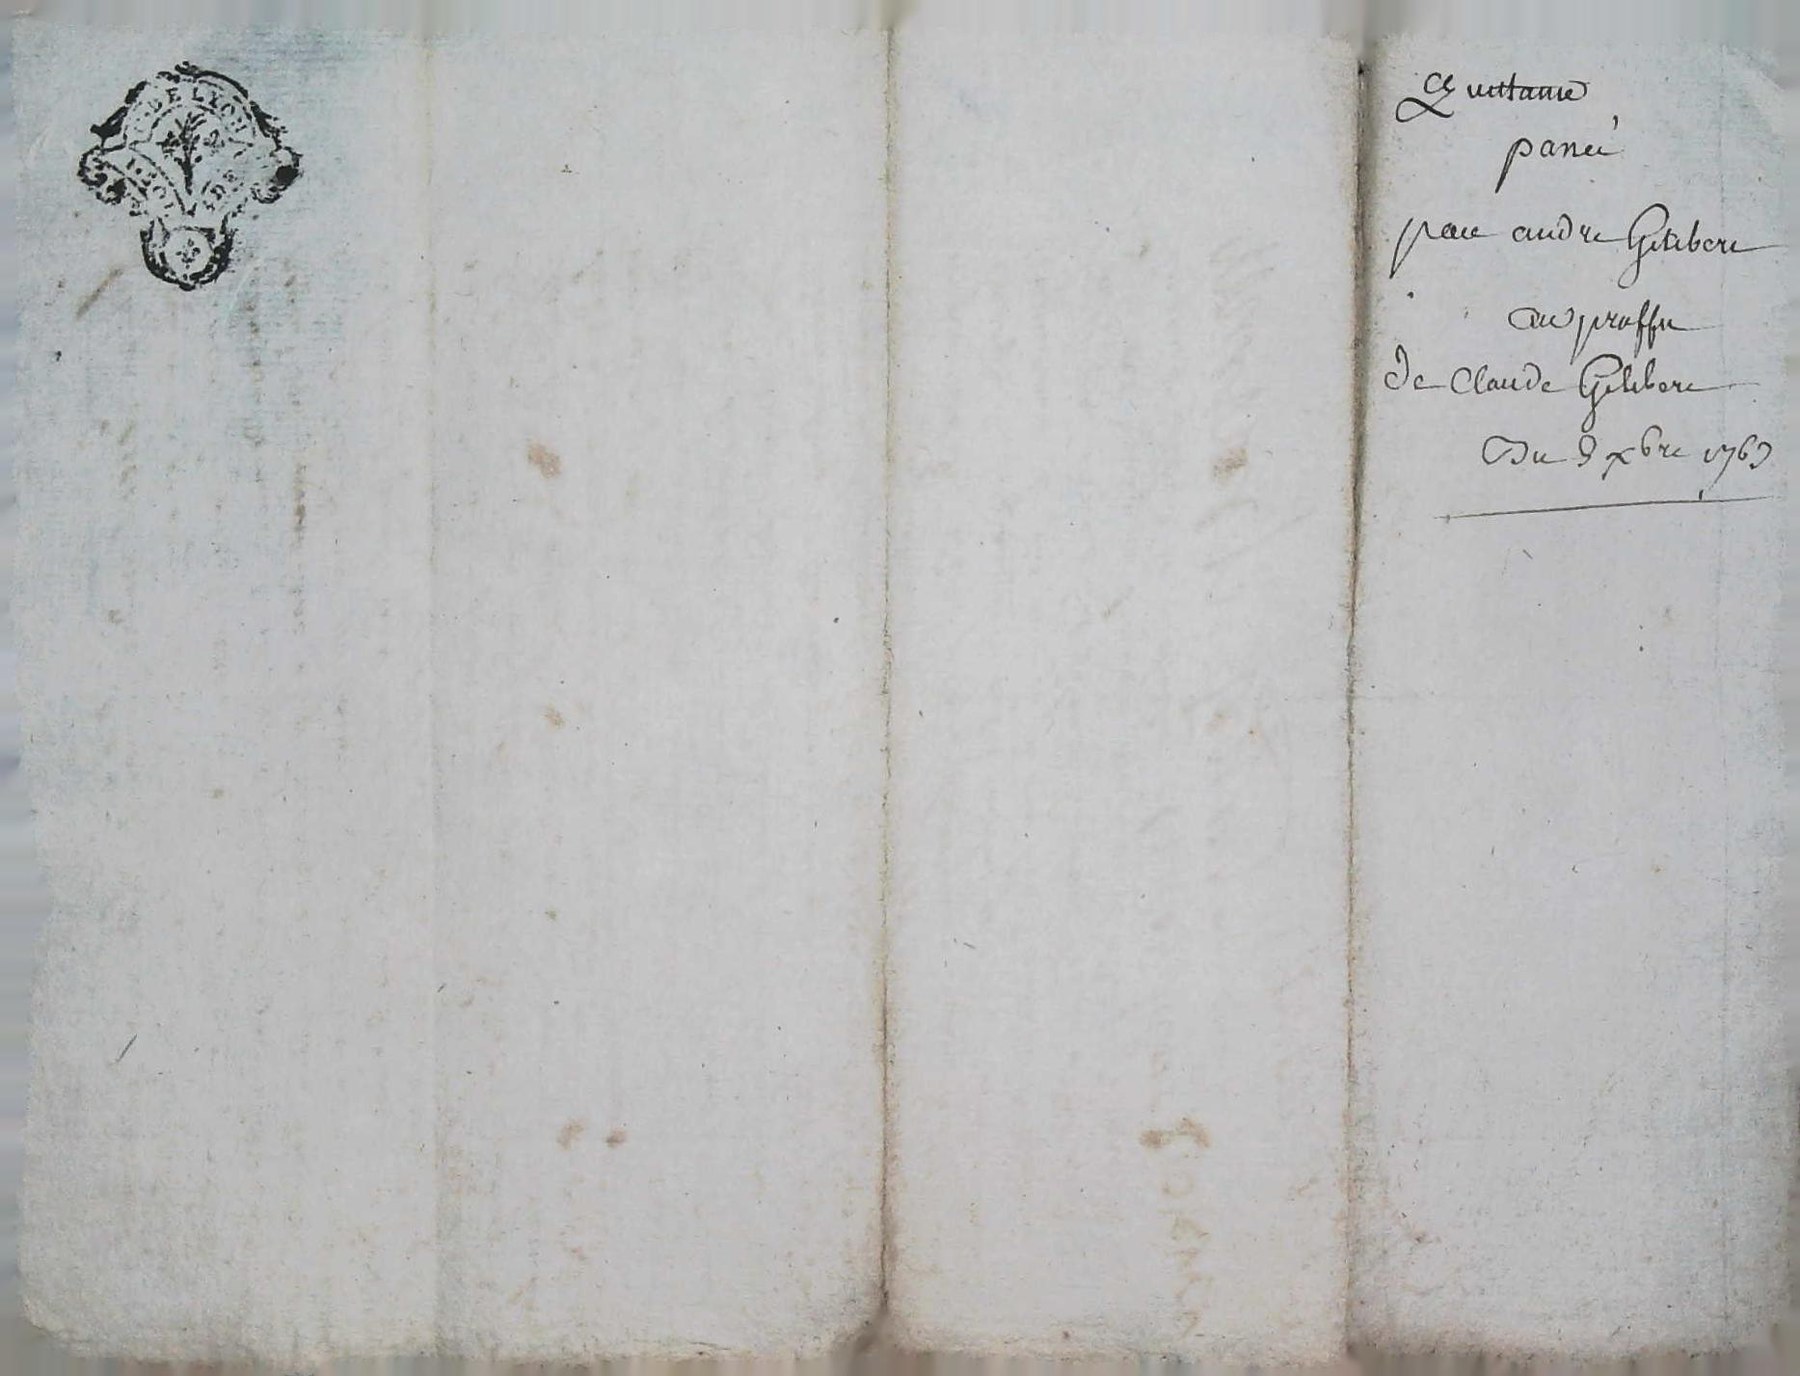 DE LYON
Quittance
passée
par andre Gilibert
au proffit
de Claude Gilibert
Du 8 xbre 1763